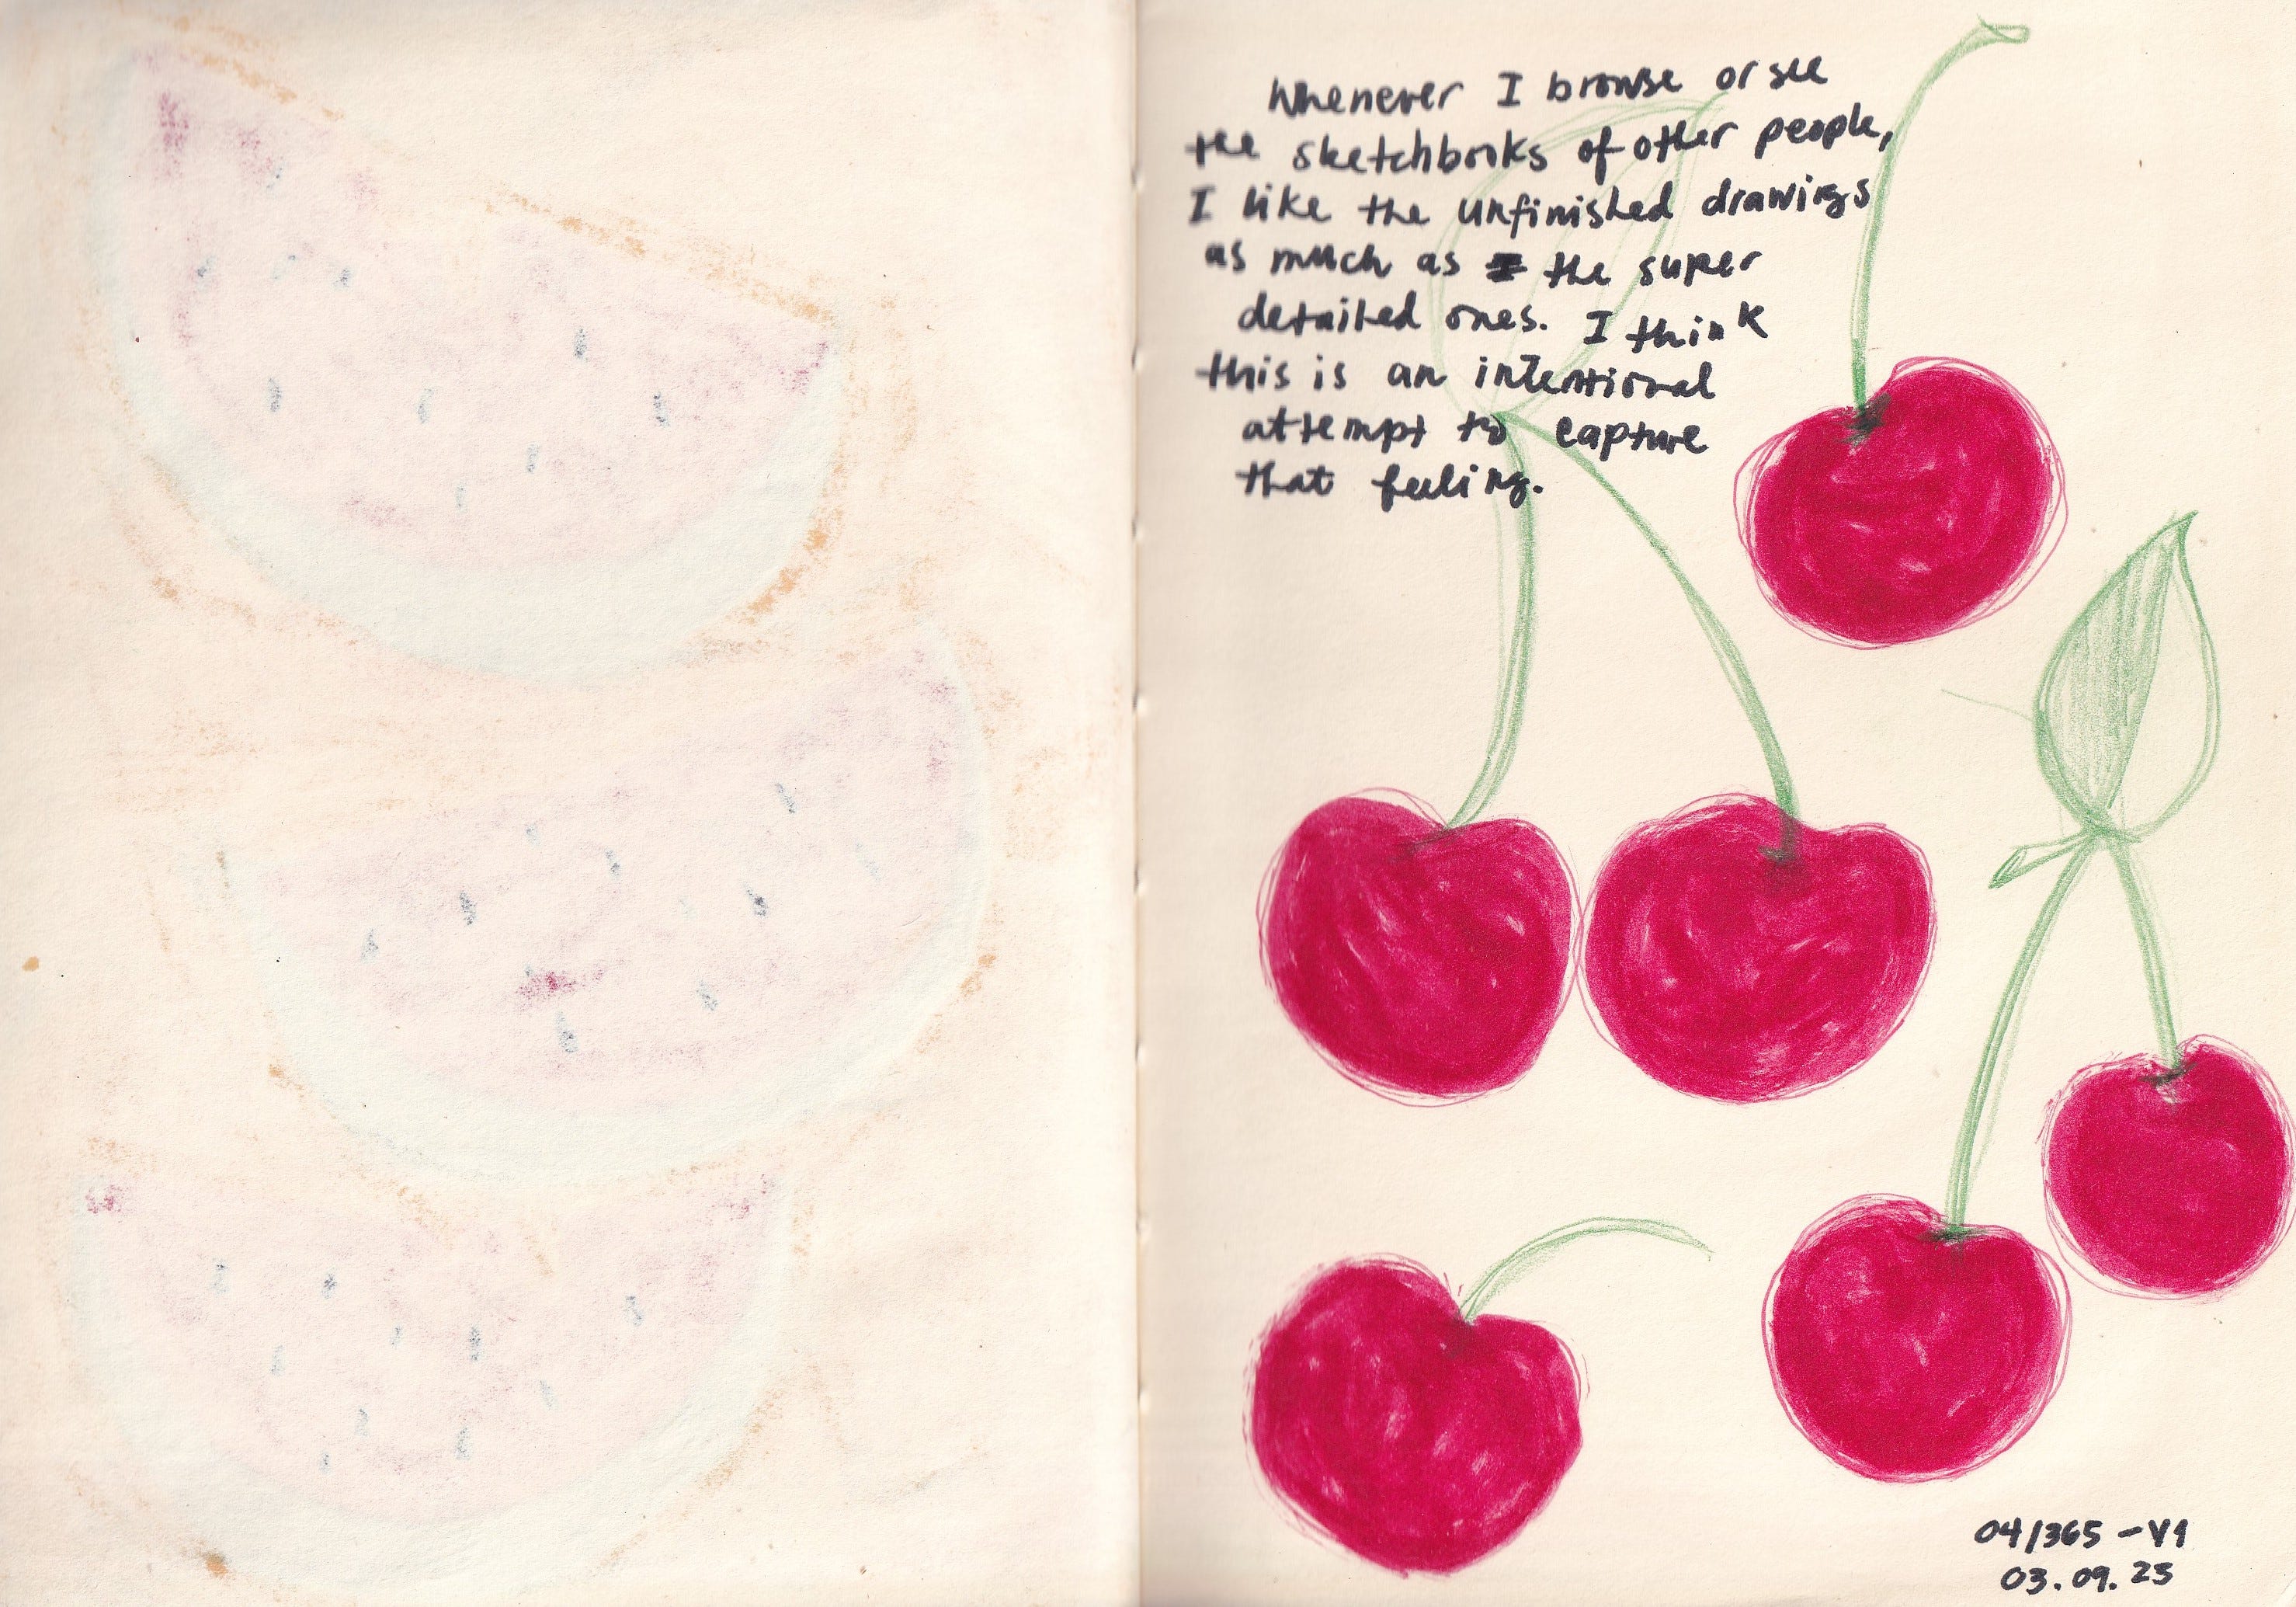 Whenever I browse or see
the sketchbooks of other people,
I like the unfinished drawings
as much as the super
detailed ones. I think
this is an intentional
attempt to capture
that feeling.
04/365 - V1
03.09.23